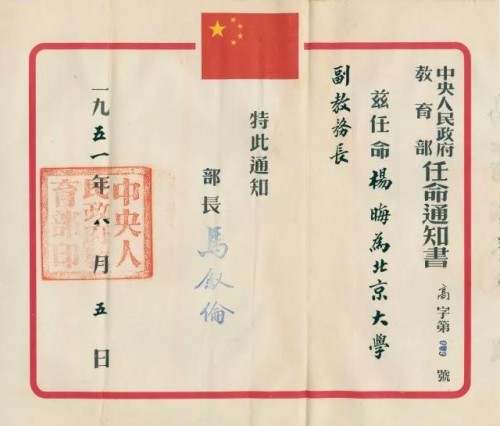 中央人民政府
教育部
任命通知書
高字第 號
茲任命楊晦為北京大學
副教務長
特此通知
部長 馬叙倫
一九五一年八月五日
中央人
民政府
育部印